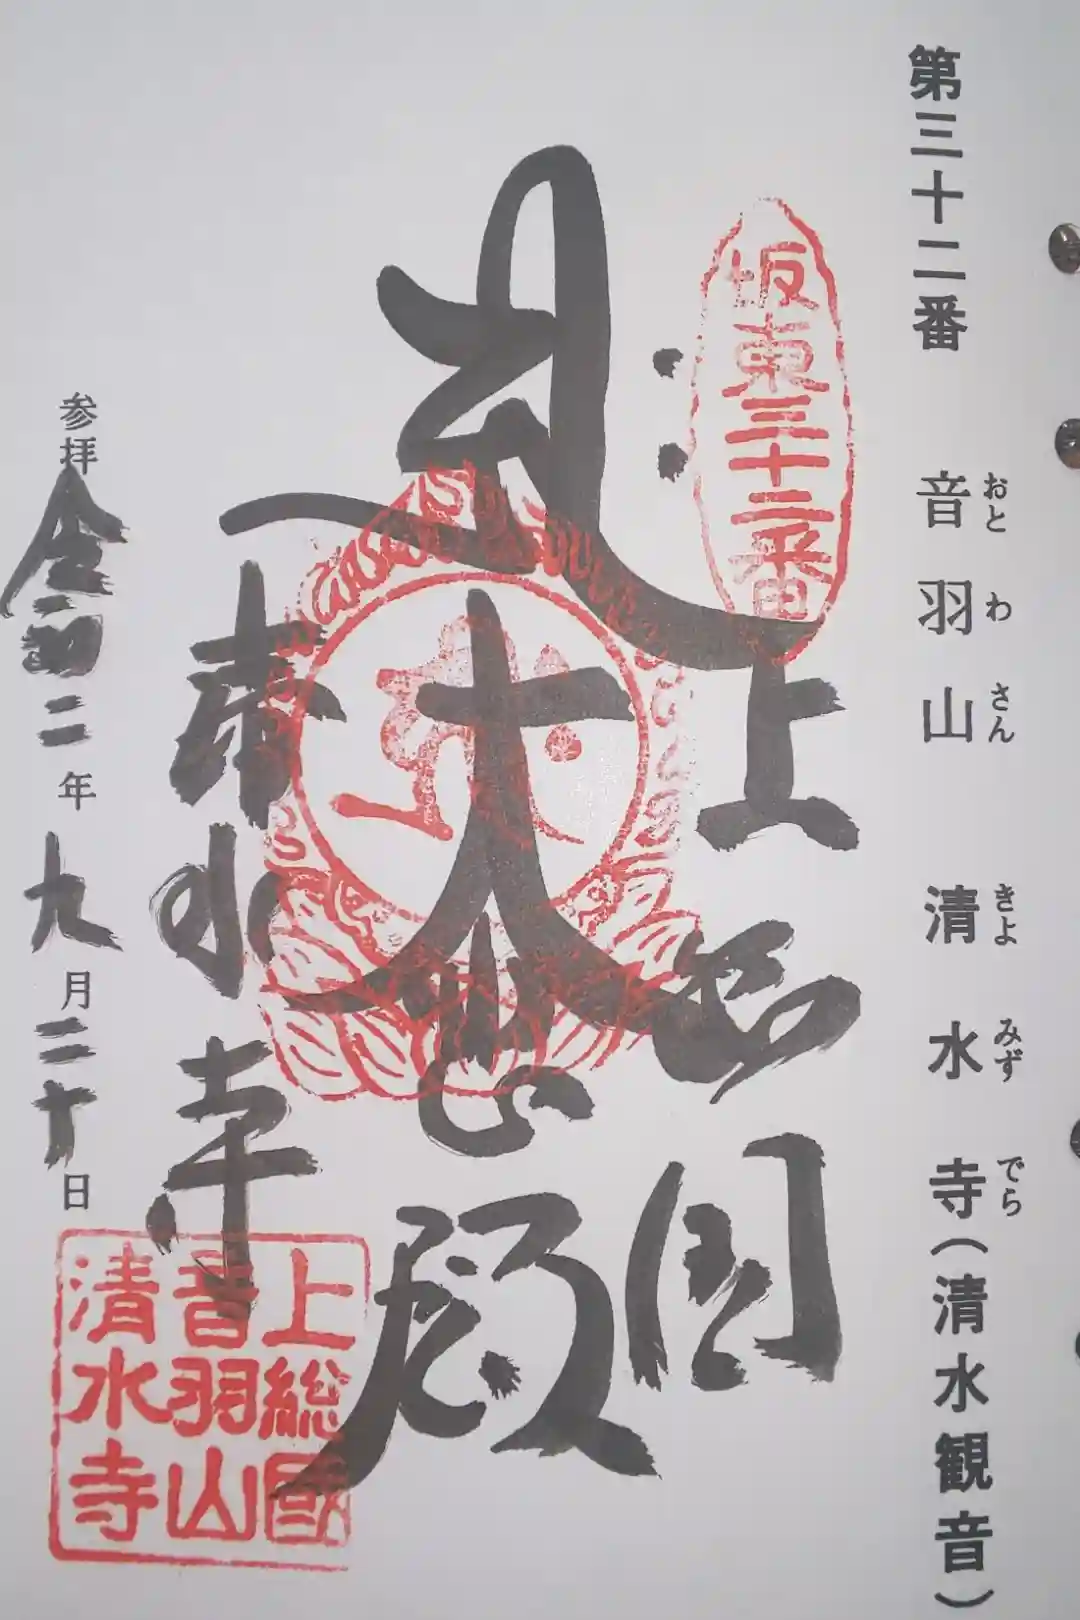 第三十二番 音羽山 清水寺(清水観音)
おとわさん きよみずでら
坂東三十二番
上総国
大悲殿
清水寺
参拝 令和二年九月二十日
上総國
音羽山
清水寺